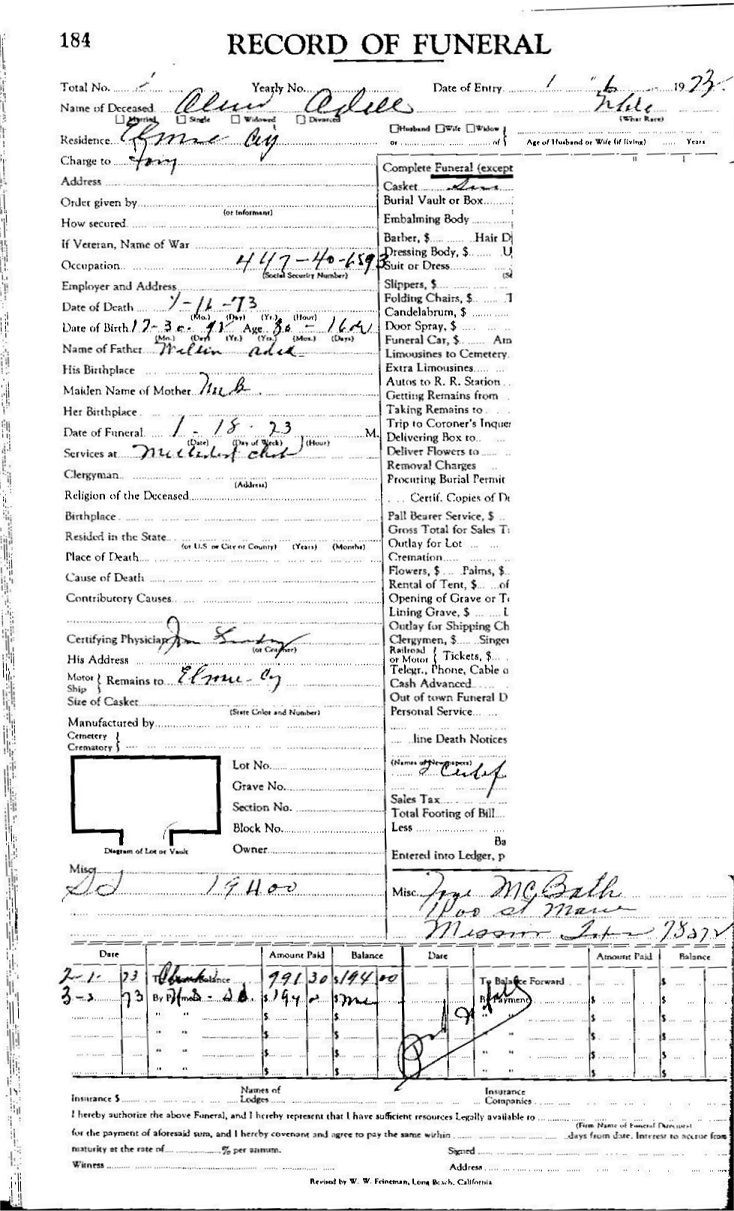 184
RECORD OF FUNERAL
Total No. Yearly No. Date of Entry 1 16 1973
Name of Deceased Adell White
Married Single Widowed Divorced (What Race)
Residence Elmore City
Husband Wife Widow
or of Age of Husband or Wife (if living) Years
Charge to
Address
Order given by
(or Informant)
How secured
If Veteran, Name of War
Occupation 447-40-6593
(Social Security Number)
Employer and Address
Date of Death 1-16-73
(Mo.) (Day) (Yr.) (Hour)
Date of Birth 12-30-92 Age 80 - 16
(Mo.) (Day) (Yr.) (Yrs.) (Mos.) (Days)
Name of Father
His Birthplace
Maiden Name of Mother
Her Birthplace
Date of Funeral 1-18-73 M.
(Date) (Day of Week) (Hour)
Services at Methodist
Clergyman
(Address)
Religion of the Deceased
Birthplace
Resided in the State
(or U.S or City or County) (Years) (Months)
Place of Death
Cause of Death
Contributory Causes
Certifying Physician
(or Coroner)
His Address
Motor Ship Remains to Elmore City
Size of Casket
(State Color and Number)
Manufactured by
Cemetery
Crematory
Lot No.
Grave No.
Section No.
Block No.
Owner
Diagram of Lot or Vault
Misc.
19400
Complete Funeral (except
Casket
Burial Vault or Box
Embalming Body
Barber, $ Hair D
Dressing Body, $ U
Suit or Dress
Slippers, $
Folding Chairs, $ T
Candelabrum, $
Door Spray, $
Funeral Car, $ Am
Limousines to Cemetery
Extra Limousines
Autos to R. R. Station
Getting Remains from
Taking Remains to
Trip to Coroner's Inque
Delivering Box to
Deliver Flowers to
Removal Charges
Procuring Burial Permit
Certif. Copies of De
Pall Bearer Service, $
Gross Total for Sales T
Outlay for Lot
Cremation
Flowers, $ Palms, $
Rental of Tent, $ of
Opening of Grave or T
Lining Grave, $ L
Outlay for Shipping Ch
Clergymen, $ Singer
Railroad or Motor Tickets, $
Telegr., Phone, Cable o
Cash Advanced
Out of town Funeral D
Personal Service
line Death Notices
(Names of Newspapers)
Sales Tax
Total Footing of Bill
Less
Ba
Entered into Ledger, p
Misc. McBath
1400 St Marie
Mission 78572
Date Amount Paid Balance Date Amount Paid Balance
2-1- 73 To Balance 991 30 $194 00 To Balance Forward
3-2 73 By $194 $ By Payment
" " $ $ " " $ $
" " $ $ " " $ $
" " $ $ " " $ $
" " $ $ " " $ $
Insurance $ Names of Lodges Insurance Companies
I hereby authorize the above Funeral, and I hereby represent that I have sufficient resources Legally available to
(Firm Name of Funeral Directors)
for the payment of aforesaid sum, and I hereby covenant and agree to pay the same within days from date. Interest to accrue from
maturity at the rate of % per annum. Signed
Witness Address
Revised by W. W. Feineman, Long Beach, California